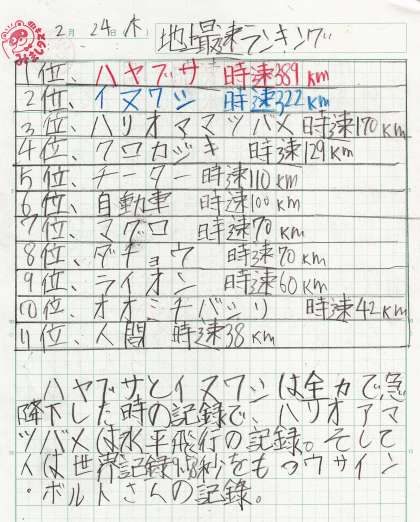 2月 24日(木)
地上最速ランキング
1位、ハヤブサ 時速389km
2位、イヌワシ 時速322km
3位、ハリオアママツバメ 時速170km
4位、クロカジキ 時速129km
5位、チーター 時速110km
6位、自動車 時速100km
7位、マグロ 時速70km
8位、ダチョウ 時速70km
9位、ライオン 時速60km
10位、オオミチバシリ 時速42km
11位、人間 時速38km
ハヤブサとイヌワシは全力で急
降下した時の記録で、ハリオアマ
ツバメは水平飛行の記録。そして
人は世界記録9.58秒をもつウサイン
・ボルトさんの記録。